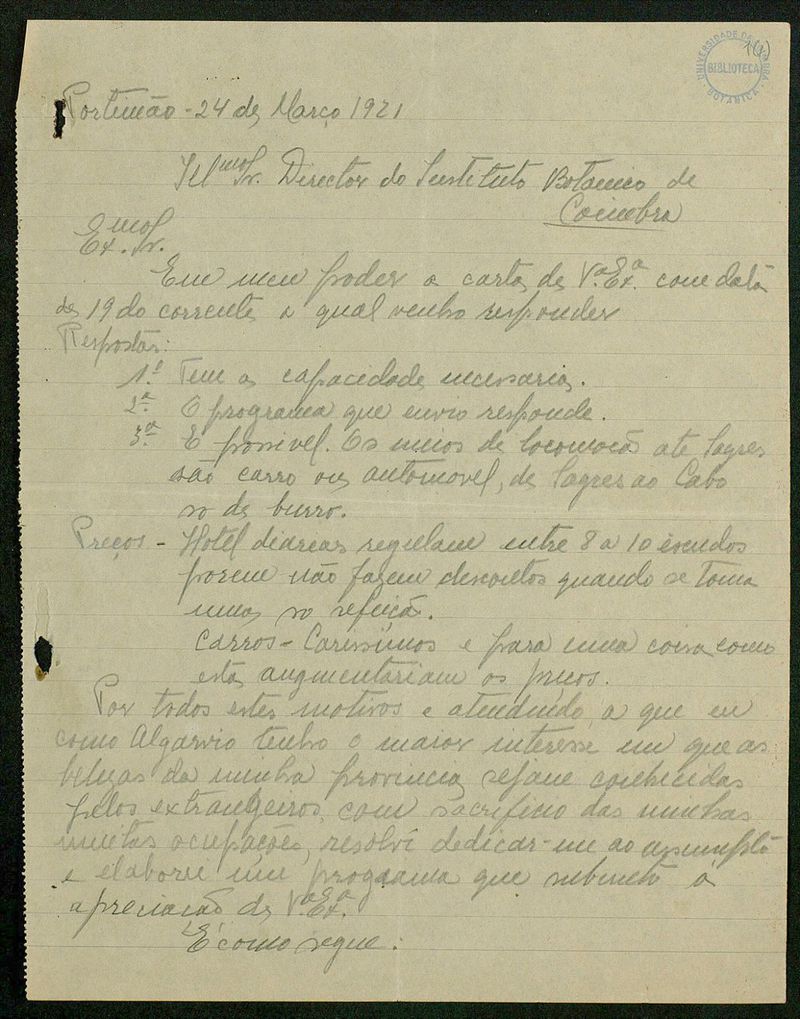 UNIVERSIDADE DE COIMBRA
BIBLIOTECA
BOTANICA
Portimão - 24 de Março 1921
Ill.mo Sr. Director do Instituto Botanico de
Coimbra
Ex.mo Sr.
Em meu poder a carta de V.ª Ex.ª com data
de 19 do corrente a qual venho responder
Respostas:
1.ª Tem a capacidade necessaria.
2.ª O programa que envio responde.
3.ª É possivel. Os meios de locomoção ate Sagres
são carro ou automovel, de Sagres ao Cabo
so de burro.
Preços - Hotel diarias regulam entre 8 a 10 escudos
porem não fazem descontos quando se toma
uma so refeição.
Carros - Carissimos e para uma coisa como
esta augmentariam os preços.
Por todos estes motivos e atendendo a que eu
como Algarvio tenho o maior interesse em que as
belezas da minha provincia sejam conhecidas
pelos extrangeiros, com sacrificio das minhas
muitas ocupações, resolvi dedicar-me ao assumpto
e elaborei um programa que submeto á
apreciação de V.ª Ex.ª
É como segue: